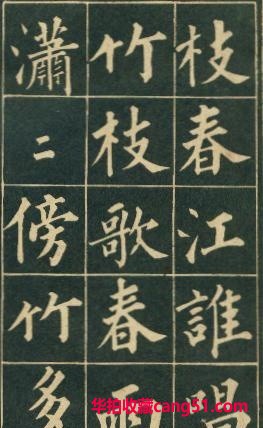 枝春江誰唱
竹枝歌春雨
瀟二傍竹多
华拍收藏cang51.com